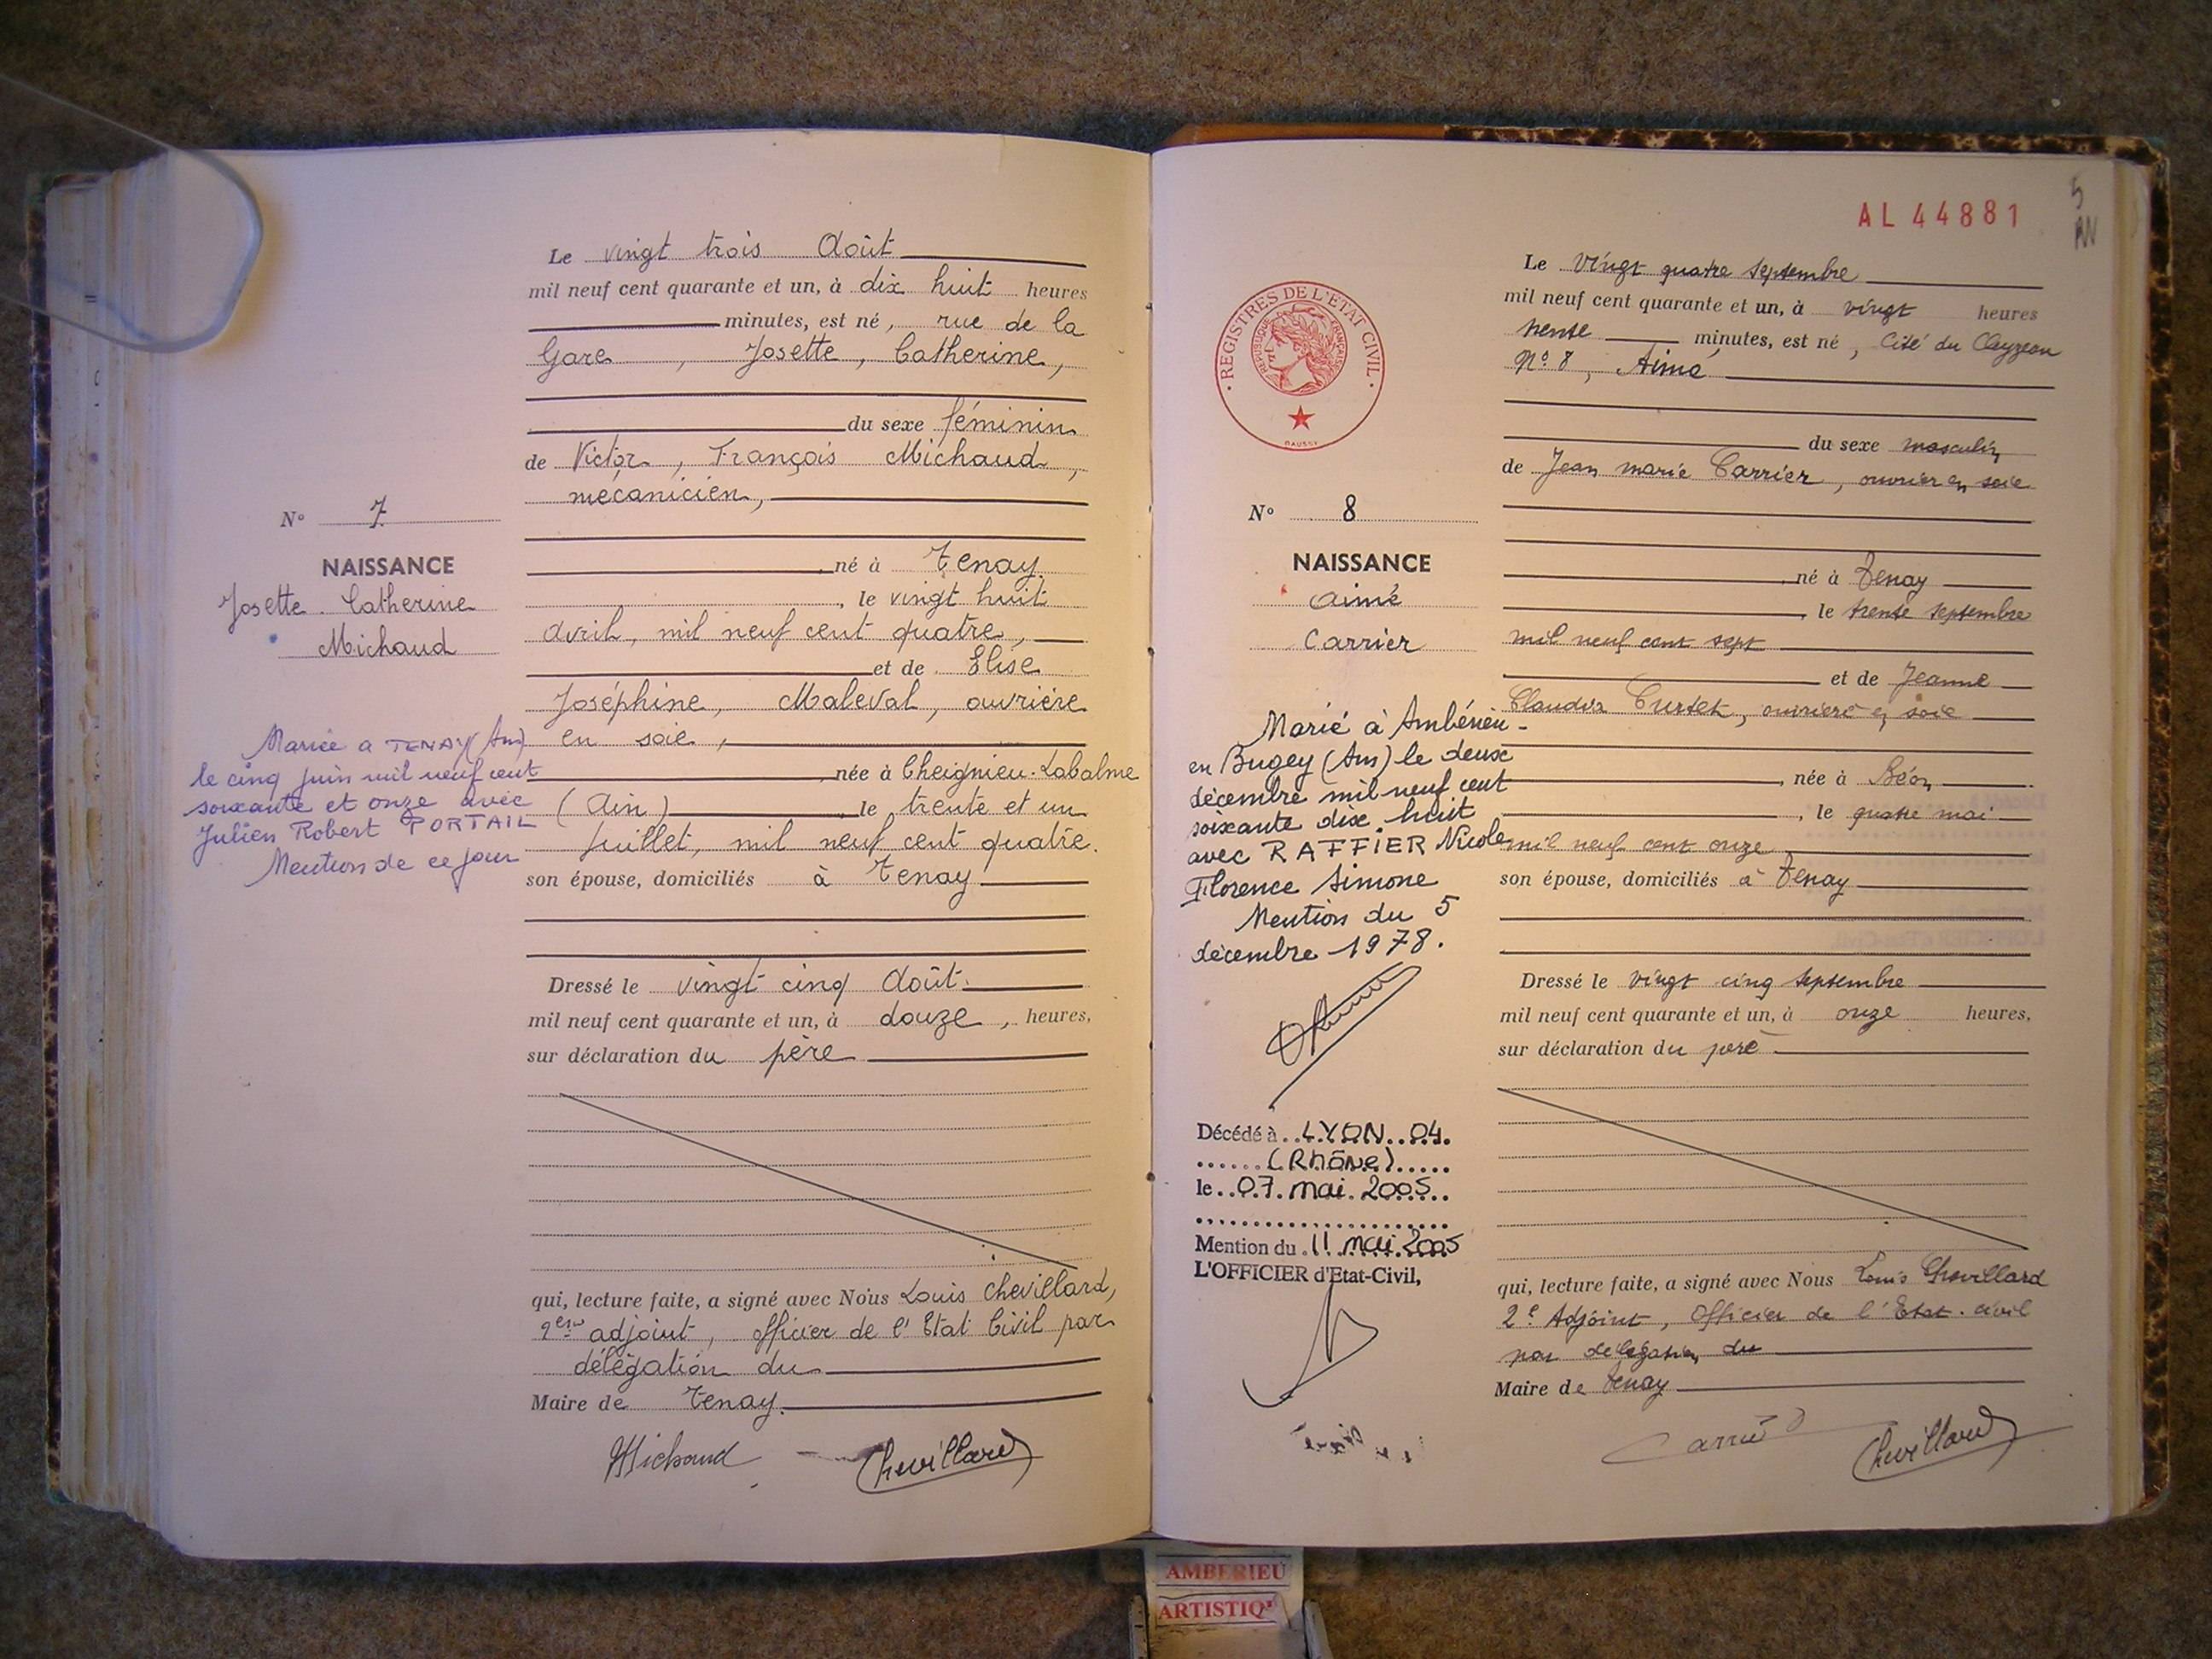 Le vingt trois Août
mil neuf cent quarante et un, à dix huit heures
minutes, est né, rue de la
Gare, Josette, Catherine,
du sexe féminin
de Victor, François Michaud,
mécanicien,
né à Tenay
, le vingt huit
Avril, mil neuf cent quatre,
et de Elise
Joséphine, Maleval, ouvrière
en soie,
, née à Cheignieu-Labalme
(Ain) , le trente et un
Juillet, mil neuf cent quatre.
son épouse, domiciliés à Tenay
Dressé le vingt cinq Août.
mil neuf cent quarante et un, à douze, heures,
sur déclaration du père
qui, lecture faite, a signé avec Nous Louis Chevillard,
adjoint, officier de l'Etat Civil par
délégation du
Maire de Tenay.
Michaud Chevillard
N° 7
NAISSANCE
Josette. Catherine
Michaud
Mariée à TENAY (Ain)
le cinq juin mil neuf cent
soixante et onze avec
Julien Robert PORTAIL
Mention de ce jour
AL 44881
5
REGISTRES DE L'ETAT CIVIL
REPUBLIQUE FRANÇAISE
Le vingt quatre septembre
mil neuf cent quarante et un, à vingt heures
trente minutes, est né, Cité du
N° 8, Aimé
du sexe masculin
de Jean marie Carrier, ouvrier en soie
, né à Tenay
, le trente septembre
mil neuf cent sept
et de Jeanne
Claudia Curtet, ouvrière en soie
, née à Béon
, le quatre mai
mil neuf cent onze
son épouse, domiciliés à Tenay
Dressé le vingt cinq septembre
mil neuf cent quarante et un, à onze heures,
sur déclaration du père
qui, lecture faite, a signé avec Nous Louis Chevillard
2e Adjoint, Officier de l'Etat-civil
par délégation du
Maire de Tenay
Carrier Chevillard
N° 8
NAISSANCE
Aimé
Carrier
Marié à Ambérieu-
en Bugey (Ain) le deux
décembre mil neuf cent
soixante dix huit
avec RAFFIER Nicole
Florence Simone
Mention du 5
décembre 1978.
Décédé à LYON 04.
(Rhône)
le 07 mai 2005
Mention du 11 mai 2005
L'OFFICIER d'Etat-Civil,
AMBERIEU
ARTISTIQ